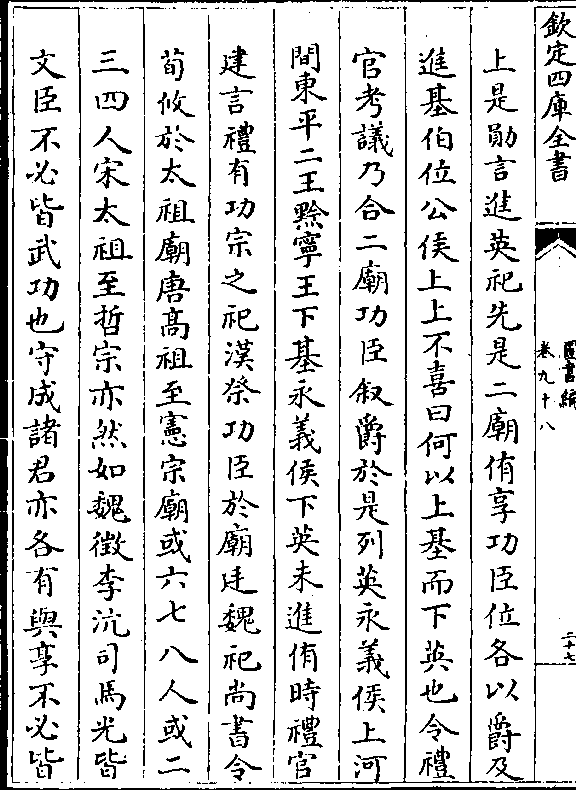 欽定四庫全書
圖書編
卷九十八
二十七
上是勛言進英祀先是二廟侑享功臣位各以爵及
進基伯位公侯上上不喜曰何以上基而下英也令禮
官考議乃合二廟功臣叙爵於是列英永義侯上河
間東平二王黔寧王下基永義侯下英未進侑時禮官
建言禮有功宗之祀漢祭功臣於廟廷魏祀尚書令
荀攸於太祖廟唐高祖至憲宗廟或六七八人或二
三四人宋太祖至哲宗亦然如魏徵李沆司馬光皆
文臣不必皆武功也守成諸君亦各有與享不必皆